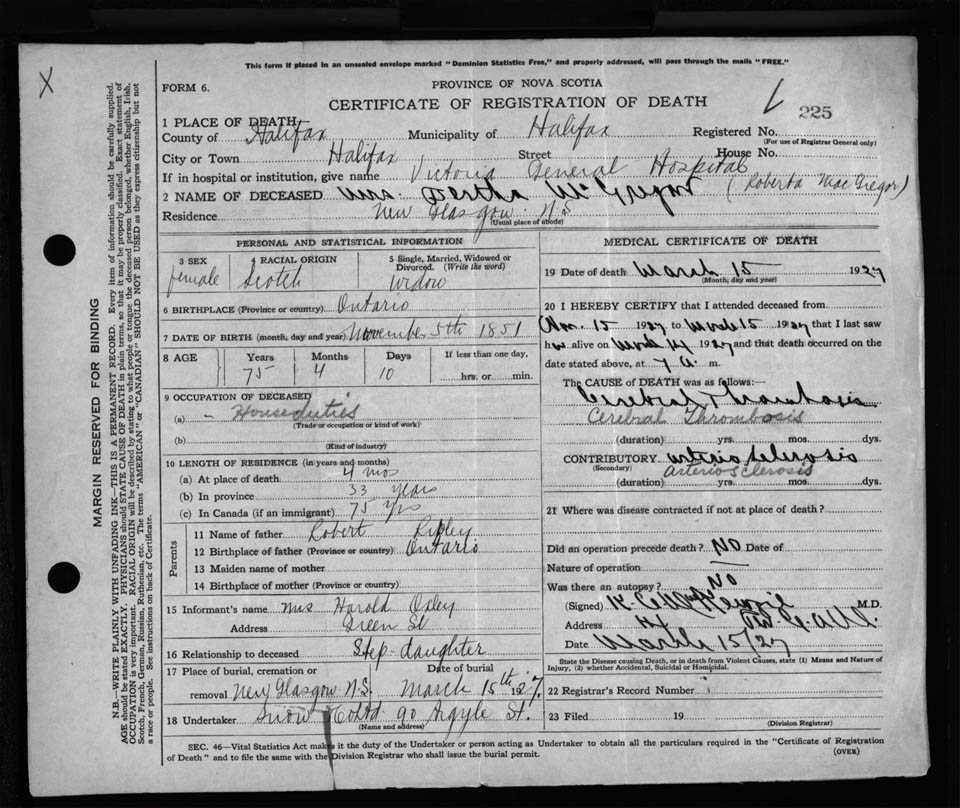 X
This form if placed in an unsealed envelope marked "Dominion Statistics Free," and properly addressed, will pass through the mails "FREE."
FORM 6.
PROVINCE OF NOVA SCOTIA
CERTIFICATE OF REGISTRATION OF DEATH
225
1 PLACE OF DEATH
County of Halifax Municipality of Halifax Registered No.
(For use of Registrar General only)
City or Town Halifax Street House No.
If in hospital or institution, give name Victoria General Hospital
2 NAME OF DECEASED Mrs. Bertha McGregor (Roberta MacGregor)
Residence New Glasgow N.S.
(Usual place of abode)
PERSONAL AND STATISTICAL INFORMATION
3 SEX female
4 RACIAL ORIGIN Scotch
5 Single, Married, Widowed or Divorced. (Write the word) Widow
6 BIRTHPLACE (Province or country) Ontario
7 DATE OF BIRTH (month, day and year) November 5th 1851
8 AGE Years Months Days If less than one day,
75 4 10 hrs. or min.
9 OCCUPATION OF DECEASED
(a) - Houseduties
(Trade or occupation or kind of work)
(b)
(Kind of industry)
10 LENGTH OF RESIDENCE (in years and months)
(a) At place of death 4 mos
(b) In province 33 years
(c) In Canada (if an immigrant) 75 yrs
Parents
11 Name of father Robert Ripley
12 Birthplace of father (Province or country) Ontario
13 Maiden name of mother
14 Birthplace of mother (Province or country)
15 Informant's name Mrs Harold Oxley
Address Green St
16 Relationship to deceased Step-daughter
17 Place of burial, cremation or Date of burial
removal New Glasgow N.S. March 15th 1927.
18 Undertaker Snow Co Ltd 90 Argyle St.
(Name and address)
MEDICAL CERTIFICATE OF DEATH
19 Date of death March 15 1927
(Month, day and year)
20 I HEREBY CERTIFY that I attended deceased from
Nov. 15 1927 to March 15 1927 that I last saw
h alive on March 14 1927 and that death occurred on the
date stated above, at 7 a. m.
The CAUSE of DEATH was as follows:
Cerebral Thrombosis
Cerebral Thrombosis
(duration) yrs. mos. dys.
CONTRIBUTORY arterio sclerosis
(Secondary) arteriosclerosis
(duration) yrs. mos. dys.
21 Where was disease contracted if not at place of death?
Did an operation precede death? NO Date of
Nature of operation
Was there an autopsy? NO
(Signed) M.D.
Address
Date March 15/27
State the Disease causing Death, or in death from Violent Causes, state (1) Means and Nature of Injury, (2) whether Accidental, Suicidal or Homicidal.
22 Registrar's Record Number
23 Filed 19
(Division Registrar)
SEC. 46—Vital Statistics Act makes it the duty of the Undertaker or person acting as Undertaker to obtain all the particulars required in the "Certificate of Registration
of Death" and to file the same with the Division Registrar who shall issue the burial permit. (OVER)
MARGIN RESERVED FOR BINDING
N.B.—WRITE PLAINLY WITH UNFADING INK—THIS IS A PERMANENT RECORD. Every item of information should be carefully supplied.
AGE should be stated EXACTLY. PHYSICIANS should STATE CAUSE OF DEATH in plain terms, so that it may be properly classified. Exact statement of
OCCUPATION is very important. RACIAL ORIGIN will be described by stating to what people or tongue the deceased person belonged, whether English, Irish,
Scotch, French, German, Russian, Ruthenian, etc. The terms "AMERICAN" or "CANADIAN" SHOULD NOT BE USED as they express citizenship but not
a race or people. See instructions on back of Certificate.